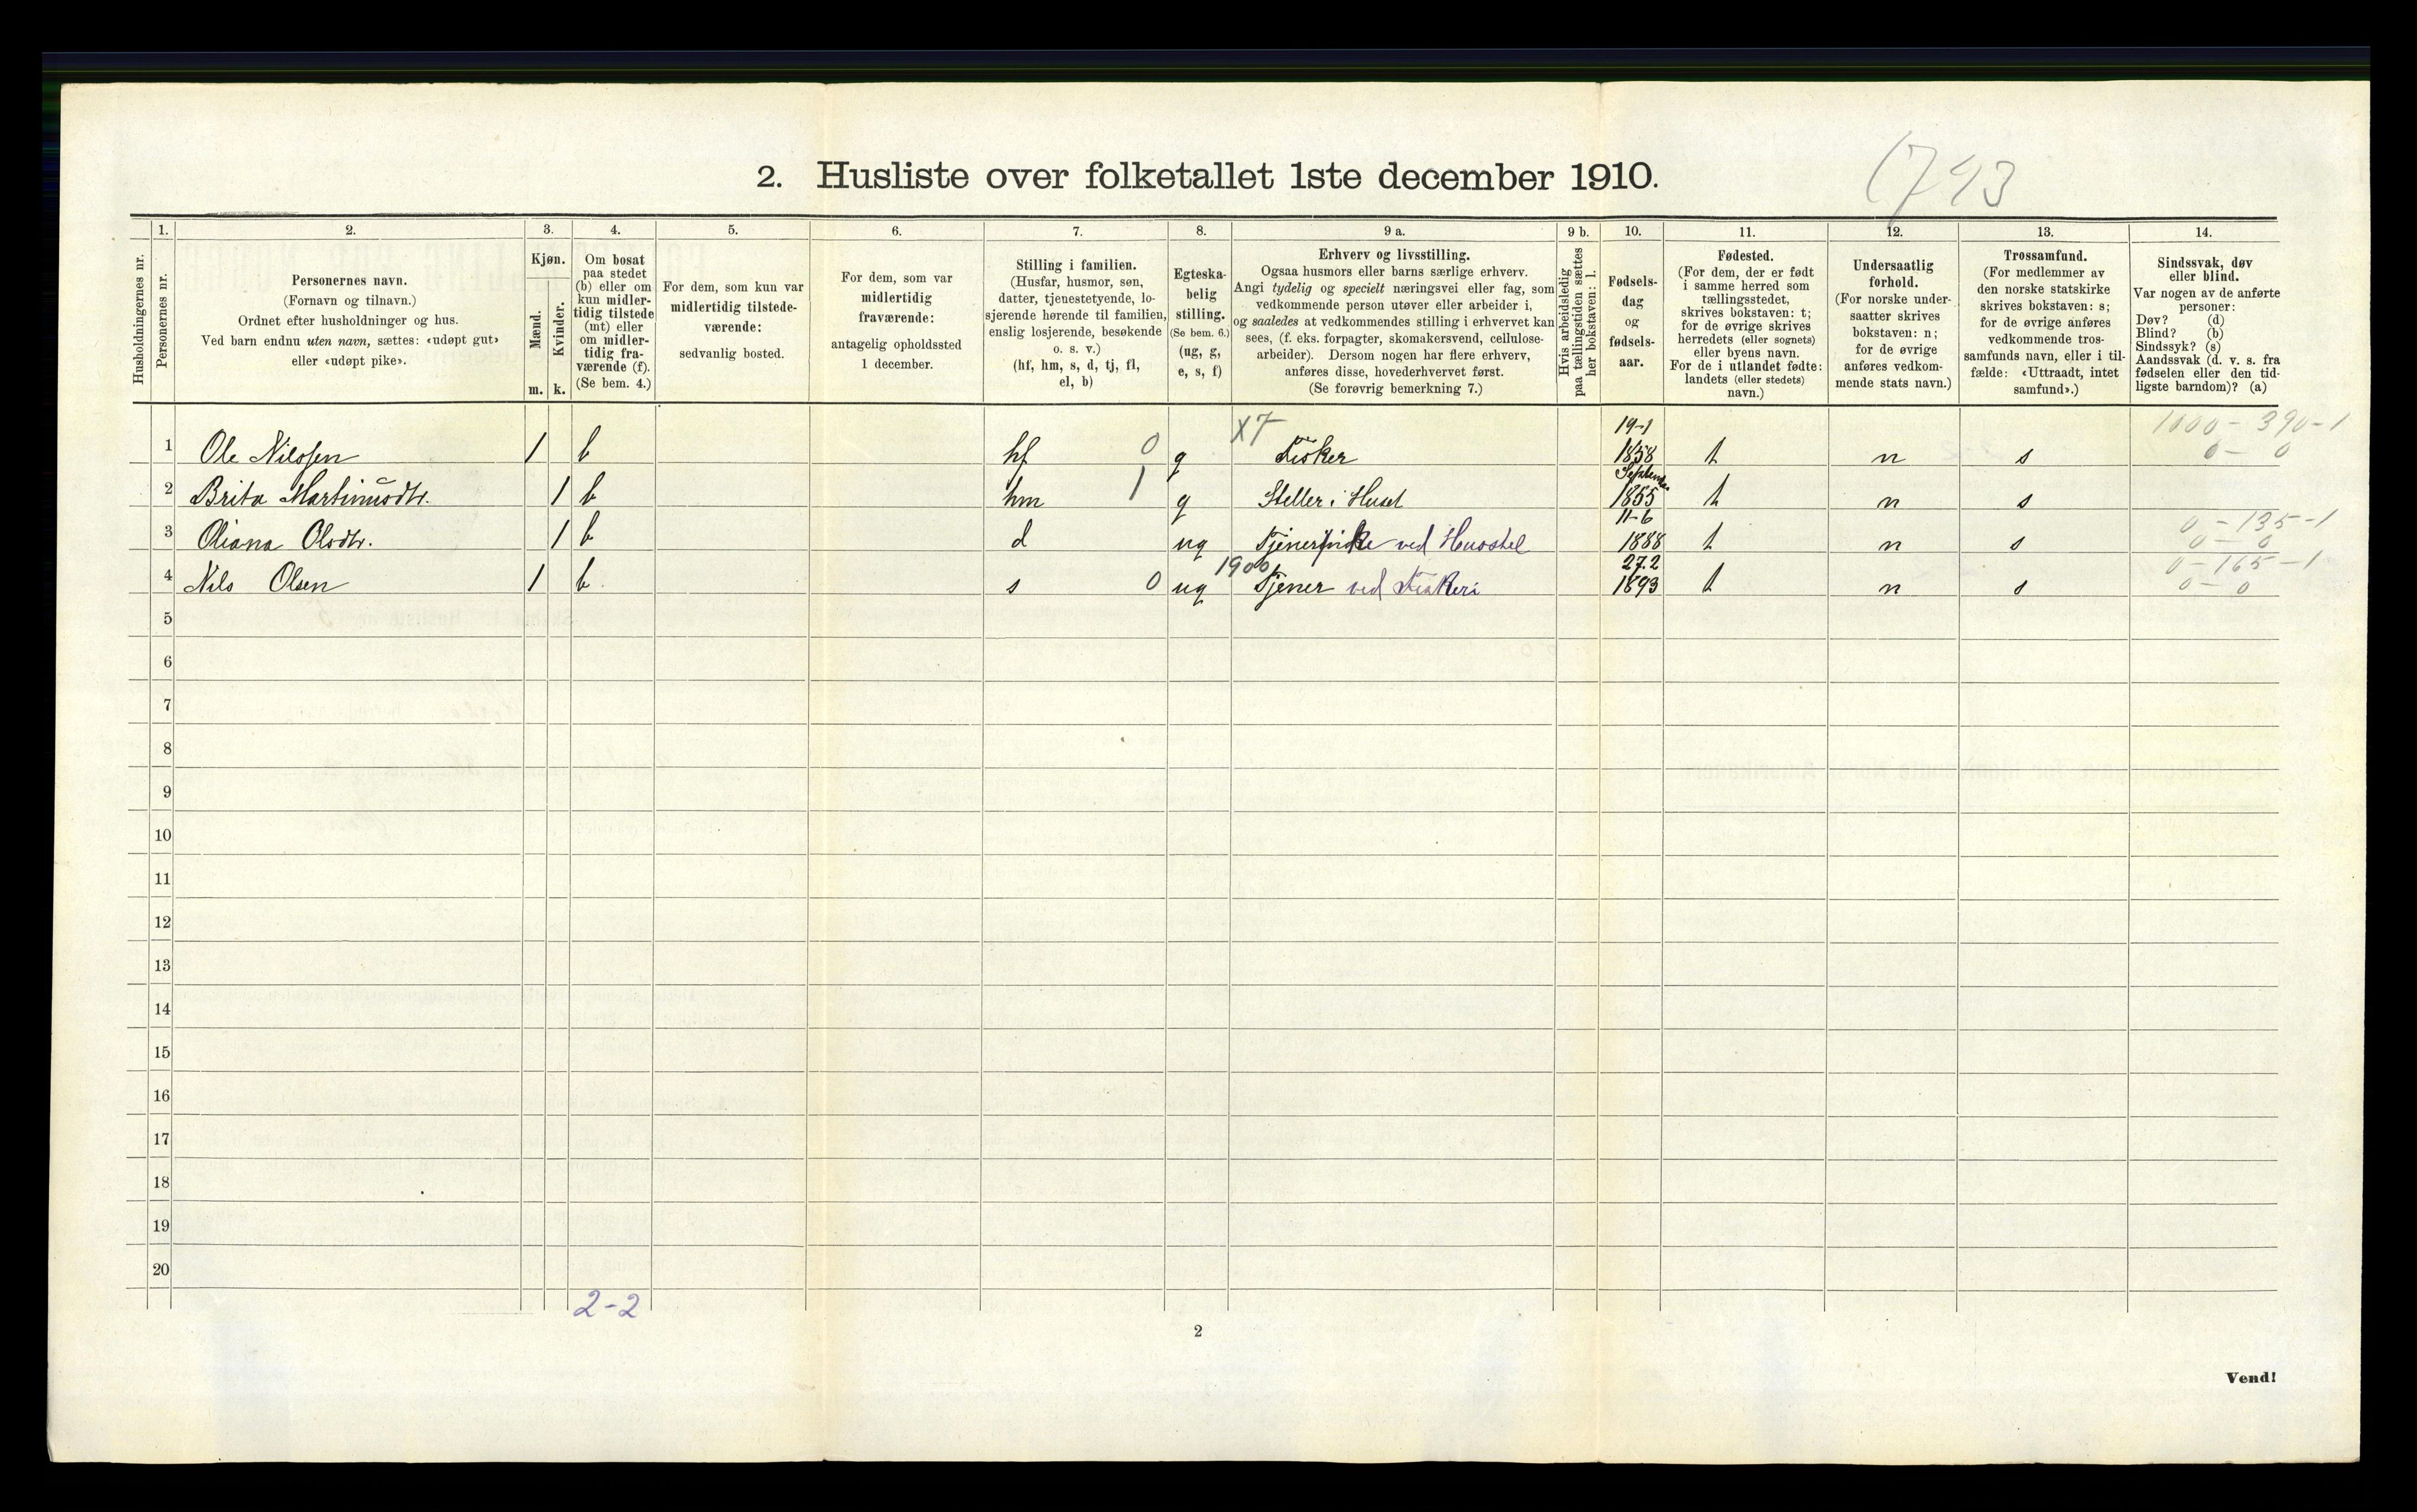 2. Husliste over folketallet 1ste december 1910.
1793
1. 2. 3. 4. 5. 6. 7. 8. 9 a. 9 b. 10. 11. 12. 13. 14.
Husholdningernes nr.
Personernes nr.
Personernes navn.
(Fornavn og tilnavn.)
Ordnet efter husholdninger og hus.
Ved barn endnu uten navn, sættes: «udøpt gut»
eller «udøpt pike».
Kjøn.
Mænd.
Kvinder.
m. k.
Om bosat
paa stedet
(b) eller om
kun midler-
tidig tilstede
(mt) eller
om midler-
tidig fra-
værende (f).
(Se bem. 4.)
For dem, som kun var
midlertidig tilstede-
værende:
sedvanlig bosted.
For dem, som var
midlertidig
fraværende:
antagelig opholdssted
1 december.
Stilling i familien.
(Husfar, husmor, søn,
datter, tjenestetyende, lo-
sjerende hørende til familien,
enslig losjerende, besøkende
o. s. v.)
(hf, hm, s, d, tj, fl,
el, b)
Egteska-
belig
stilling.
(Se bem. 6.)
(ug, g,
e, s, f)
Erhverv og livsstilling.
Ogsaa husmors eller barns særlige erhverv.
Angi tydelig og specielt næringsvei eller fag, som
vedkommende person utøver eller arbeider i,
og saaledes at vedkommendes stilling i erhvervet kan
sees, (f. eks. forpagter, skomakersvend, cellulose-
arbeider). Dersom nogen har flere erhverv,
anføres disse, hovederhvervet først.
(Se forøvrig bemerkning 7.)
Hvis arbeidsledig
paa tællingstiden sættes
her bokstaven: l.
Fødsels-
dag
og
fødsels-
aar.
Fødested.
(For dem, der er født
i samme herred som
tællingsstedet,
skrives bokstaven: t;
for de øvrige skrives
herredets (eller sognets)
eller byens navn.
For de i utlandet fødte:
landets (eller stedets)
navn.)
Undersaatlig
forhold.
(For norske under-
saatter skrives
bokstaven: n;
for de øvrige
anføres vedkom-
mende stats navn.)
Trossamfund.
(For medlemmer av
den norske statskirke
skrives bokstaven: s;
for de øvrige anføres
vedkommende tros-
samfunds navn, eller i til-
fælde: «Uttraadt, intet
samfund».)
Sindssvak, døv
eller blind.
Var nogen av de anførte
personer:
Døv? (d)
Blind? (b)
Sindssyk? (s)
Aandssvak (d. v. s. fra
fødselen eller den tid-
ligste barndom)? (a)
X7 19-1 1000 - 390-1
1 Ole Nilssen 1 b hf 0 g Fisker 1858 t n s 0 - 0
September
2 Brita Martinusdtr. 1 b hm 1 g Steller i Huset 1855 t n s
11-6 0 - 135-1
3 Oliana Olsdtr. 1 b d ug Tjenerpike ved Husstel 1888 t n s 0 - 0
1900 27.2 0 - 165 - 1
4 Nils Olsen 1 b s 0 ug Tjener ved Fiskeri 1893 t n s 0 - 0
5
6
7
8
9
10
11
12
13
14
15
16
17
18
19
20
2-2
2
Vend!